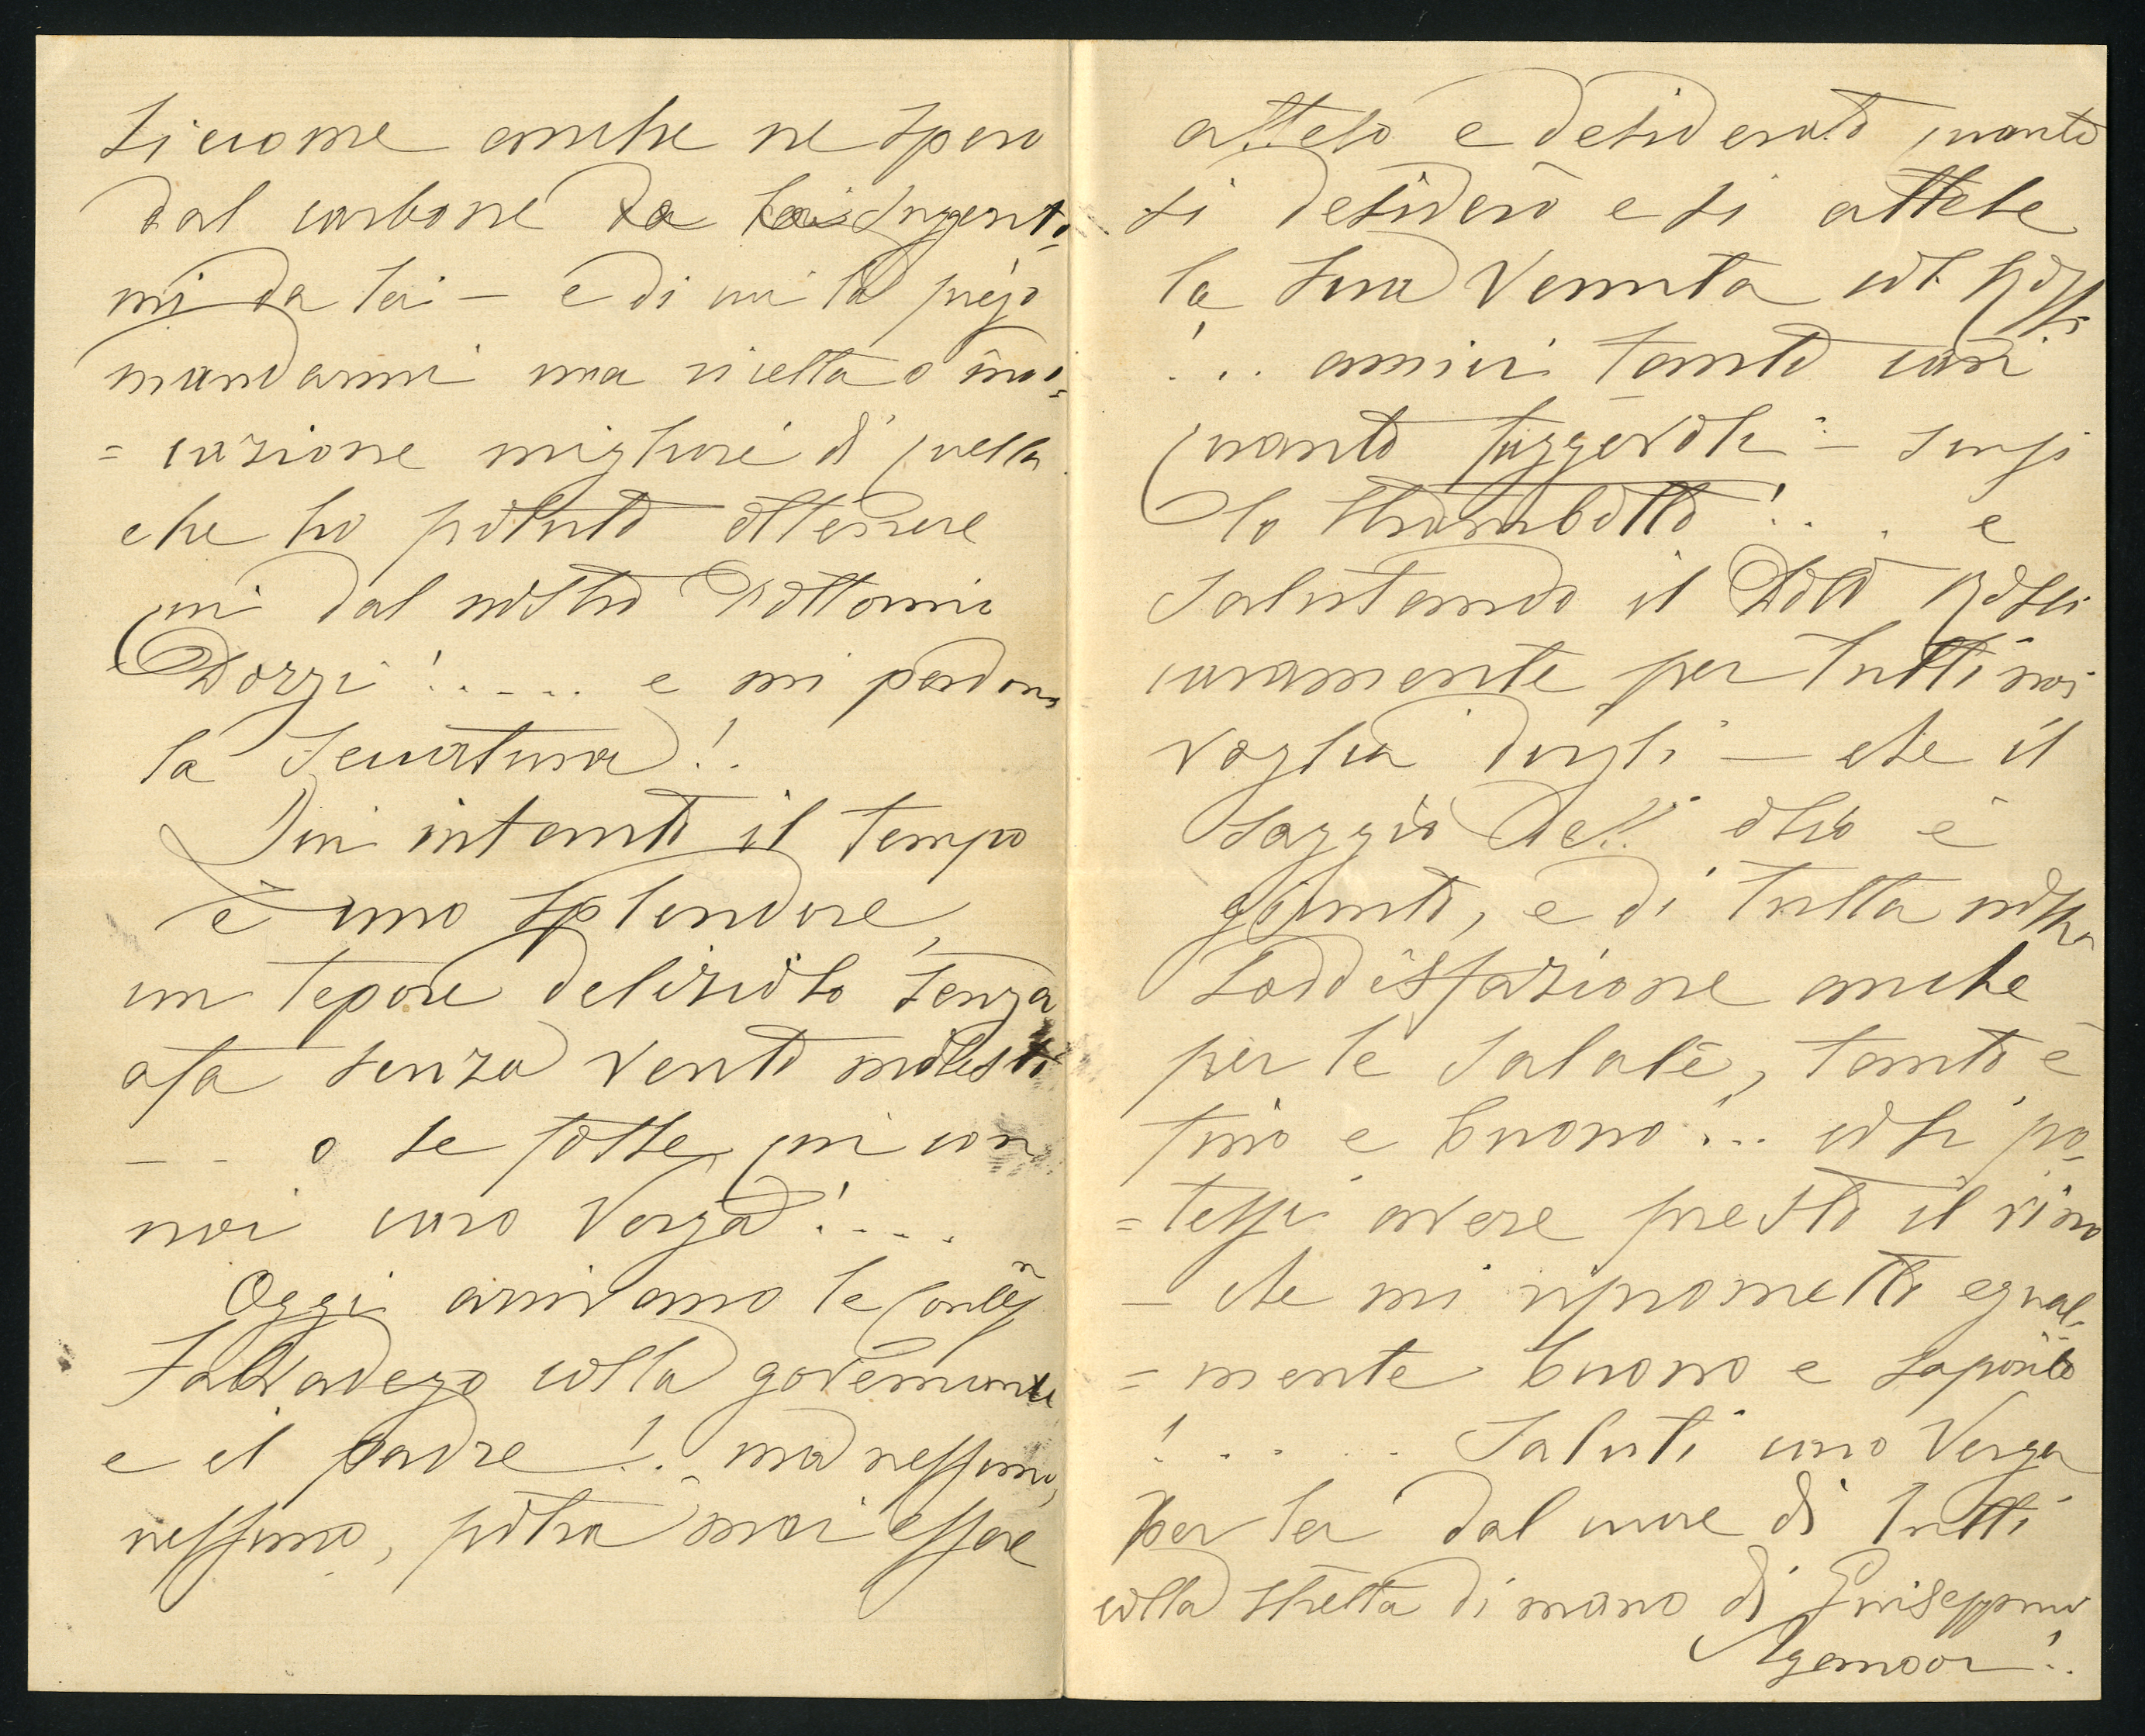 siccome anche ne spero
dal carbone da lei sugerito
mi da lei – e di cui la prego
mandarmi una ricetta o indi
= cazione migliore di quella
che ho potuto ottenere
qui dal nostro Dottorino
Dozzi!..... e mi perdoni
la seccatura!.
Qui intanto il tempo
è uno splendore,
un tepore delizioso senza
afa senza vento molesto
– – o se fosse qui con
noi caro Verga!....
Oggi arrivano le Contess
Valvadego colla governante
e il padre!.. ma nessuno,
nessuno, potrà mai essere
atteso e desiderato quanto
si desiderò e si attese
la sua venuta col Rossi
!.. amici tanto cari
quanto fuggevoli – scusi
lo strambotto!.. e
Salutando il Dottr Rossi
caramente per tutti noi
voglia dirgli – che il
saggio dell' olio è
giunto, e di tutta nostra
soddisfazione anche
per le salate, tanto è
fino e buono!... così po-
= tessi avere presto il vino
– che mi riprometto egual-
= mente buono e saporito
!..... Saluti caro Verga
per lei dal cuore di tutti
colla stretta di mano di Giuseppina
Agemoor!.